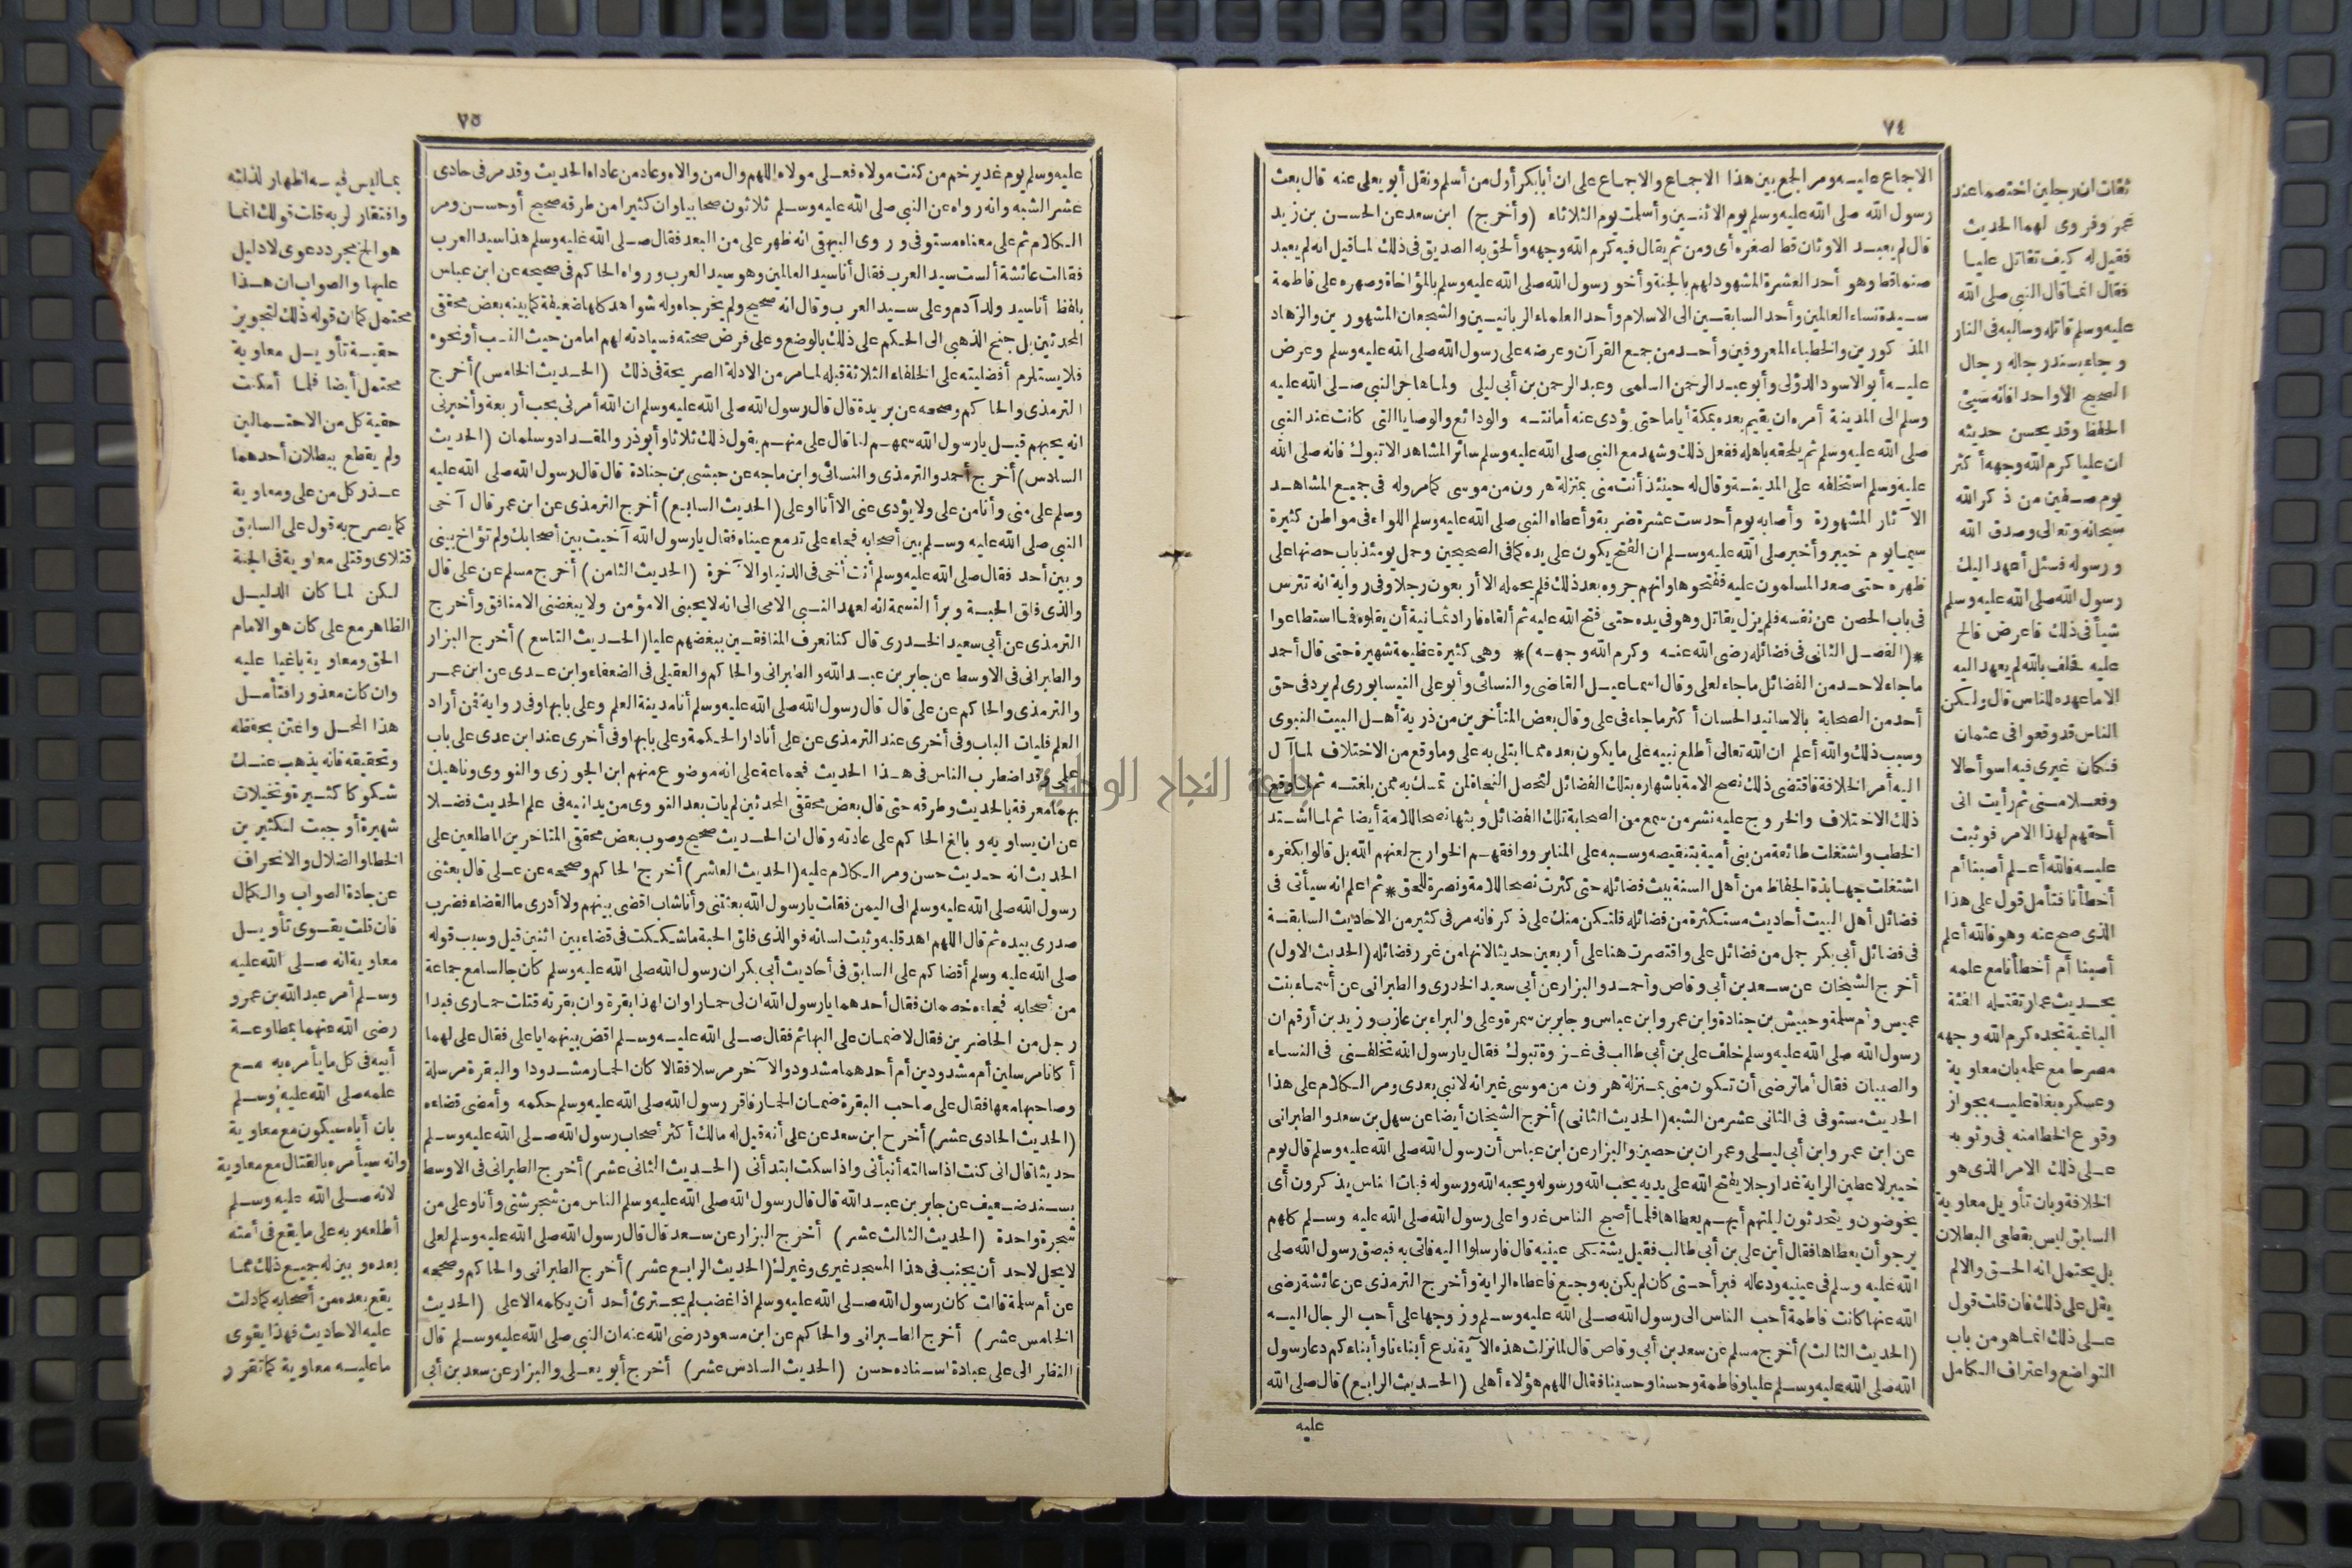 ٧٤
الاجماع عليه ومر الجمع بين هذا الاجماع والاجماع على ان أبا بكر أول من أسلم ونقل أبو يعلى عنه قال بعث
رسول الله صلى الله عليه وسلم يوم الاثنين وأسلمت يوم الثلاثاء (وأخرج) ابن سعد عن الحسن بن زيد
قال لم يعبد الاوثان قط لصغره أى ومن ثم يقال فيه كرم الله وجهه وألحق به الصديق فى ذلك لما قيل انه لم يعبد
صنما قط وهو أحد العشرة المشهود لهم بالجنة وأخو رسول الله صلى الله عليه وسلم بالمؤاخاة وصهره على فاطمة
سيدة نساء العالمين وأحد السابقين الى الاسلام وأحد العلماء الربانيين والشجعان المشهورين والزهاد
المذكورين والخطباء المعروفين وأحد من جمع القرآن وعرضه على رسول الله صلى الله عليه وسلم وعرض
عليه أبو الاسود الدؤلى وأبو عبد الرحمن السلمى وعبد الرحمن بن أبى ليلى ولما هاجر النبى صلى الله عليه
وسلم الى المدينة أمره ان يقيم بعده بمكة أياما حتى يؤدى عنه أمانته والودائع والوصايا التى كانت عند النبى
صلى الله عليه وسلم ثم يلحقه باهله ففعل ذلك وشهد مع النبى صلى الله عليه وسلم سائر المشاهد الا تبوك فانه صلى الله
عليه وسلم استخلفه على المدينة وقال له حينئذ أنت منى بمنزلة هرون من موسى كما مر وله فى جميع المشاهد
الآثار المشهورة وأصابه يوم أحد ست عشرة ضربة وأعطاه النبى صلى الله عليه وسلم اللواء فى مواطن كثيرة
سيما يوم خيبر وأخبر صلى الله عليه وسلم ان الفتح يكون على يده كما فى الصحيحين وحمل يومئذ باب حصنها على
ظهره حتى صعد المسلمون عليه ففتحوها وانهم جروه بعد ذلك فلم يحمله الا أربعون رجلا وفى رواية انه تترس
فى باب الحصن عن نفسه فلم يزل يقاتل وهو فى يده حتى فتح الله عليه ثم ألقاه فاراد ثمانية أن يقلبوه فما استطاعوا
*(الفصل الثانى فى فضائله رضى الله عنه وكرم الله وجهه)* وهى كثيرة عظيمة شهيرة حتى قال أحمد
ما جاء لاحد من الفضائل ما جاء لعلى وقال اسماعيل القاضى والنسائى وأبو على النيسابورى لم يرد فى حق
أحد من الصحابة بالاسانيد الحسان أكثر ما جاء فى على وقال بعض المتأخرين من ذرية أهل البيت النبوى
وسبب ذلك والله أعلم ان الله تعالى أطلع نبيه على ما يكون بعده مما ابتلى به على وما وقع من الاختلاف لما آل
اليه أمر الخلافة فاقتضى ذلك نصح الامة باشهاره بتلك الفضائل لتحصل النجاة لمن تمسك به ممن بلغته ثم لما وقع
ذلك الاختلاف والخروج عليه نشر من سمع من الصحابة تلك الفضائل وبثها نصحا للامة أيضا ثم لما اشتد
الخطب واشتغلت طائفة من بنى أمية بتنقيصه وسبه على المنابر ووافقهم الخوارج لعنهم الله بل قالوا بكفره
اشتغلت جهابذة الحفاظ من أهل السنة ببث فضائله حتى كثرت نصحا للامة ونصرة للحق * ثم اعلم انه سيأتى فى
فضائل أهل البيت أحاديث مستكثرة من فضائله فلتكن منك على ذكر فانه مر فى كثير من الاحاديث السابقة
فى فضائل أبى بكر جمل من فضائل على واقتصرت هنا على أربعين حديثا لانها من غرر فضائله (الحديث الاول)
أخرج الشيخان عن سعد بن أبى وقاص وأحمد والبزار عن أبى سعيد الخدرى والطبرانى عن أسماء بنت
عميس وأم سلمة وحبيش بن جنادة وابن عمر وابن عباس وجابر بن سمرة وعلى والبراء بن عازب وزيد بن أرقم ان
رسول الله صلى الله عليه وسلم خلف على بن أبى طالب فى غزوة تبوك فقال يا رسول الله تخلفنى فى النساء
والصبيان فقال أما ترضى أن تكون منى بمنزلة هرون من موسى غير انه لا نبى بعدى ومر الكلام على هذا
الحديث مستوفى فى الثانى عشر من الشبه (الحديث الثانى) أخرج الشيخان أيضا عن سهل بن سعد والطبرانى
عن ابن عمر وابن أبى ليلى وعمران بن حصين والبزار عن ابن عباس أن رسول الله صلى الله عليه وسلم قال يوم
خيبر لاعطين الراية غدا رجلا يفتح الله على يديه يحب الله ورسوله ويحبه الله ورسوله فبات الناس يذكرون أى
يخوضون ويتحدثون ليلتهم أيهم يعطاها فلما أصبح الناس غدوا على رسول الله صلى الله عليه وسلم كلهم
يرجو أن يعطاها فقال أين على بن أبى طالب فقيل يشتكى عينيه قال فارسلوا اليه فاتى به فبصق رسول الله صلى
الله عليه وسلم فى عينيه ودعا له فبرأ حتى كان لم يكن به وجع فاعطاه الراية وأخرج الترمذى عن عائشة رضى
الله عنها كانت فاطمة أحب الناس الى رسول الله صلى الله عليه وسلم وزوجها على أحب الرجال اليه
(الحديث الثالث) أخرج مسلم عن سعد بن أبى وقاص قال لما نزلت هذه الآية ندع أبناءنا وأبناءكم دعا رسول
الله صلى الله عليه وسلم عليا وفاطمة وحسنا وحسينا فقال اللهم هؤلاء أهلى (الحديث الرابع) قال صلى الله
عليه
ثقات ان رجلين اختصما عند
عمرو فروى لهما الحديث
فقيل له كيف تقاتل عليا
فقال انما قال النبى صلى الله
عليه وسلم قاتله وسالبه فى النار
وجاء بسند رجاله رجال
الصحيح الا واحدا فانه سيئ
الحفظ وقد يحسن حديثه
ان عليا كرم الله وجهه أكثر
يوم صفين من ذكر الله
سبحانه وتعالى وصدق الله
ورسوله فسئل أعهد اليك
رسول الله صلى الله عليه وسلم
شيأ فى ذلك فاعرض فالح
عليه فحلف بالله لم يعهد اليه
الا ما عهده للناس قال ولكن
الناس قد وقعوا فى عثمان
فكان غيرى فيه اسوأ حالا
وفعلا منى ثم رأيت انى
أحقهم لهذا الامر فوثبت
عليه فالله أعلم أصبنا أم
أخطأنا فتأمل قول على هذا
الذى صح عنه وهو فالله أعلم
أصبنا أم أخطأنا مع علمه
بحديث عمار تقتله الفئة
الباغية تجده كرم الله وجهه
مصرحا مع علمه بان معاوية
وعسكره بغاة عليه بجواز
وقوع الخطا منه فى وثوبه
على ذلك الامر الذى هو
الخلافة وبان تأويل معاوية
السابق ليس بقطعى البطلان
بل يحتمل انه الحق والا لم
يقل على ذلك فان قلت قول
على ذلك انما هو من باب
التواضع واعتراف الكامل
٧٥
عليه وسلم يوم غدير خم من كنت مولاه فعلى مولاه اللهم وال من والاه وعاد من عاداه الحديث وقد مر فى حادى
عشر الشبه وانه رواه عن النبى صلى الله عليه وسلم ثلاثون صحابيا وان كثيرا من طرقه صحيح أو حسن ومر
الكلام ثم على معناه مستوفى وروى البيهقى انه ظهر على من البعد فقال صلى الله عليه وسلم هذا سيد العرب
فقالت عائشة ألست سيد العرب فقال أنا سيد العالمين وهو سيد العرب ورواه الحاكم فى صحيحه عن ابن عباس
بلفظ أنا سيد ولد آدم وعلى سيد العرب وقال انه صحيح ولم يخرجاه وله شواهد كلها ضعيفة كما بينه بعض محققى
المحدثين بل جنح الذهبى الى الحكم على ذلك بالوضع وعلى فرض صحته فسيادته لهم اما من حيث النسب أو نحوه
فلا يستلزم أفضليته على الخلفاء الثلاثة قبله لما مر من الادلة الصريحة فى ذلك (الحديث الخامس) أخرج
الترمذى والحاكم وصححه عن بريدة قال قال رسول الله صلى الله عليه وسلم ان الله أمرنى بحب أربعة وأخبرنى
انه يحبهم قيل يا رسول الله سمهم لنا قال على منهم يقول ذلك ثلاثا وأبو ذر والمقداد وسلمان (الحديث
السادس) أخرج أحمد والترمذى والنسائى وابن ماجه عن حبشى بن جنادة قال قال رسول الله صلى الله عليه
وسلم على منى وأنا من على ولا يؤدى عنى الا أنا او على (الحديث السابع) أخرج الترمذى عن ابن عمر قال آخى
النبى صلى الله عليه وسلم بين أصحابه فجاء على تدمع عيناه فقال يا رسول الله آخيت بين أصحابك ولم تؤاخ بينى
وبين أحد فقال صلى الله عليه وسلم أنت أخى فى الدنيا والآخرة (الحديث الثامن) أخرج مسلم عن على قال
والذى فلق الحبة وبرأ النسمة انه لعهد النبى الامى الى انه لا يحبنى الا مؤمن ولا يبغضنى الا منافق وأخرج
الترمذى عن أبى سعيد الخدرى قال كنا نعرف المنافقين ببغضهم عليا (الحديث التاسع) أخرج البزار
والطبرانى فى الاوسط عن جابر بن عبد الله والطبرانى والحاكم والعقيلى فى الضعفاء وابن عدى عن ابن عمر
والترمذى والحاكم عن على قال قال رسول الله صلى الله عليه وسلم أنا مدينة العلم وعلى بابها وفى رواية فمن أراد
العلم فليات الباب وفى أخرى عند الترمذى عن على أنا دار الحكمة وعلى بابها وفى أخرى عند ابن عدى على باب
علمى وقد اضطرب الناس فى هذا الحديث فجماعة على انه موضوع منهم ابن الجوزى والنووى وناهيك
بهما معرفة بالحديث وطرقه حتى قال بعض محققى المحدثين لم يات بعد النووى من يدانيه فى علم الحديث فضلا
عن ان يساويه وبالغ الحاكم على عادته وقال ان الحديث صحيح وصوب بعض محققى المتاخرين المطلعين على
الحديث انه حديث حسن ومر الكلام عليه (الحديث العاشر) أخرج الحاكم وصححه عن على قال بعثنى
رسول الله صلى الله عليه وسلم الى اليمن فقلت يا رسول الله بعثتنى وأنا شاب اقضى بينهم ولا أدرى ما القضاء فضرب
صدرى بيده ثم قال اللهم اهد قلبه وثبت لسانه فو الذى فلق الحبة ما شككت فى قضاء بين اثنين قيل وسبب قوله
صلى الله عليه وسلم أقضاكم على السابق فى أحاديث أبى بكر ان رسول الله صلى الله عليه وسلم كان جالسا مع جماعة
من أصحابه فجاءه خصمان فقال أحدهما يا رسول الله ان لى حمارا وان لهذا بقرة وان بقرته قتلت حمارى فبدا
رجل من الحاضرين فقال لا ضمان على البهائم فقال صلى الله عليه وسلم اقض بينهما يا على فقال على لهما
أكانا مرسلين أم مشدودين أم أحدهما مشدود والآخر مرسلا فقالا كان الحمار مشدودا والبقرة مرسلة
وصاحبها معها فقال على صاحب البقرة ضمان الحمار فاقر رسول الله صلى الله عليه وسلم حكمه وأمضى قضاءه
(الحديث الحادى عشر) أخرج ابن سعد عن على أنه قيل له مالك أكثر أصحاب رسول الله صلى الله عليه وسلم
حديثا قال انى كنت اذا سالته أنبأنى واذا سكت ابتدأنى (الحديث الثانى عشر) أخرج الطبرانى فى الاوسط
بسند ضعيف عن جابر بن عبد الله قال قال رسول الله صلى الله عليه وسلم الناس من شجر شتى وأنا وعلى من
شجرة واحدة (الحديث الثالث عشر) أخرج البزار عن سعد قال قال رسول الله صلى الله عليه وسلم لعلى
لا يحل لاحد أن يجنب فى هذا المسجد غيرى وغيرك (الحديث الرابع عشر) أخرج الطبرانى والحاكم وصححه
عن أم سلمة قالت كان رسول الله صلى الله عليه وسلم اذا غضب لم يجترئ أحد أن يكلمه الا على (الحديث
الخامس عشر) أخرج الطبرانى والحاكم عن ابن مسعود رضى الله عنه ان النبى صلى الله عليه وسلم قال
النظر الى على عبادة اسناده حسن (الحديث السادس عشر) أخرج أبو يعلى والبزار عن سعد بن أبى
بما ليس فيه اظهار لذلته
وافتقار لربه قلت قولك انما
هو الخ مجرد دعوى لا دليل
عليها والصواب ان هذا
محتمل كما ان قوله ذلك لتجويز
حقية تأويل معاوية
محتمل أيضا فلما أمكنت
حقية كل من الاحتمالين
ولم يقطع ببطلان أحدهما
عذر كل من على ومعاوية
كما يصرح به قول على السابق
قتلاى وقتلى معاوية فى الجنة
لكن لما كان الدليل
الظاهر مع على كان هو الامام
الحق ومعاوية باغيا عليه
وان كان معذورا فتأمل
هذا المحل واعتن بحفظه
وتحقيقه فانه يذهب عنك
شكوكا كثيرة وتخيلات
شهيرة أوجبت لكثيرين
الخطا والضلال والانحراف
عن جادة الصواب والكمال
فان قلت يقوى تأويل
معاوية انه صلى الله عليه
وسلم أمر عبد الله بن عمرو
رضى الله عنهما بمطاوعة
أبيه فى كل ما يأمره به مع
علمه صلى الله عليه وسلم
بان أباه سيكون مع معاوية
وانه سيأمره بالقتال مع معاوية
لانه صلى الله عليه وسلم
أطلعه ربه على ما يقع فى أمته
بعده وبين له جميع ذلك مما
يقع بعده من أصحابه كما دلت
عليه الاحاديث فهذا يقوى
ما عليه معاوية كما تقرر
جامعة النجاح الوطنية